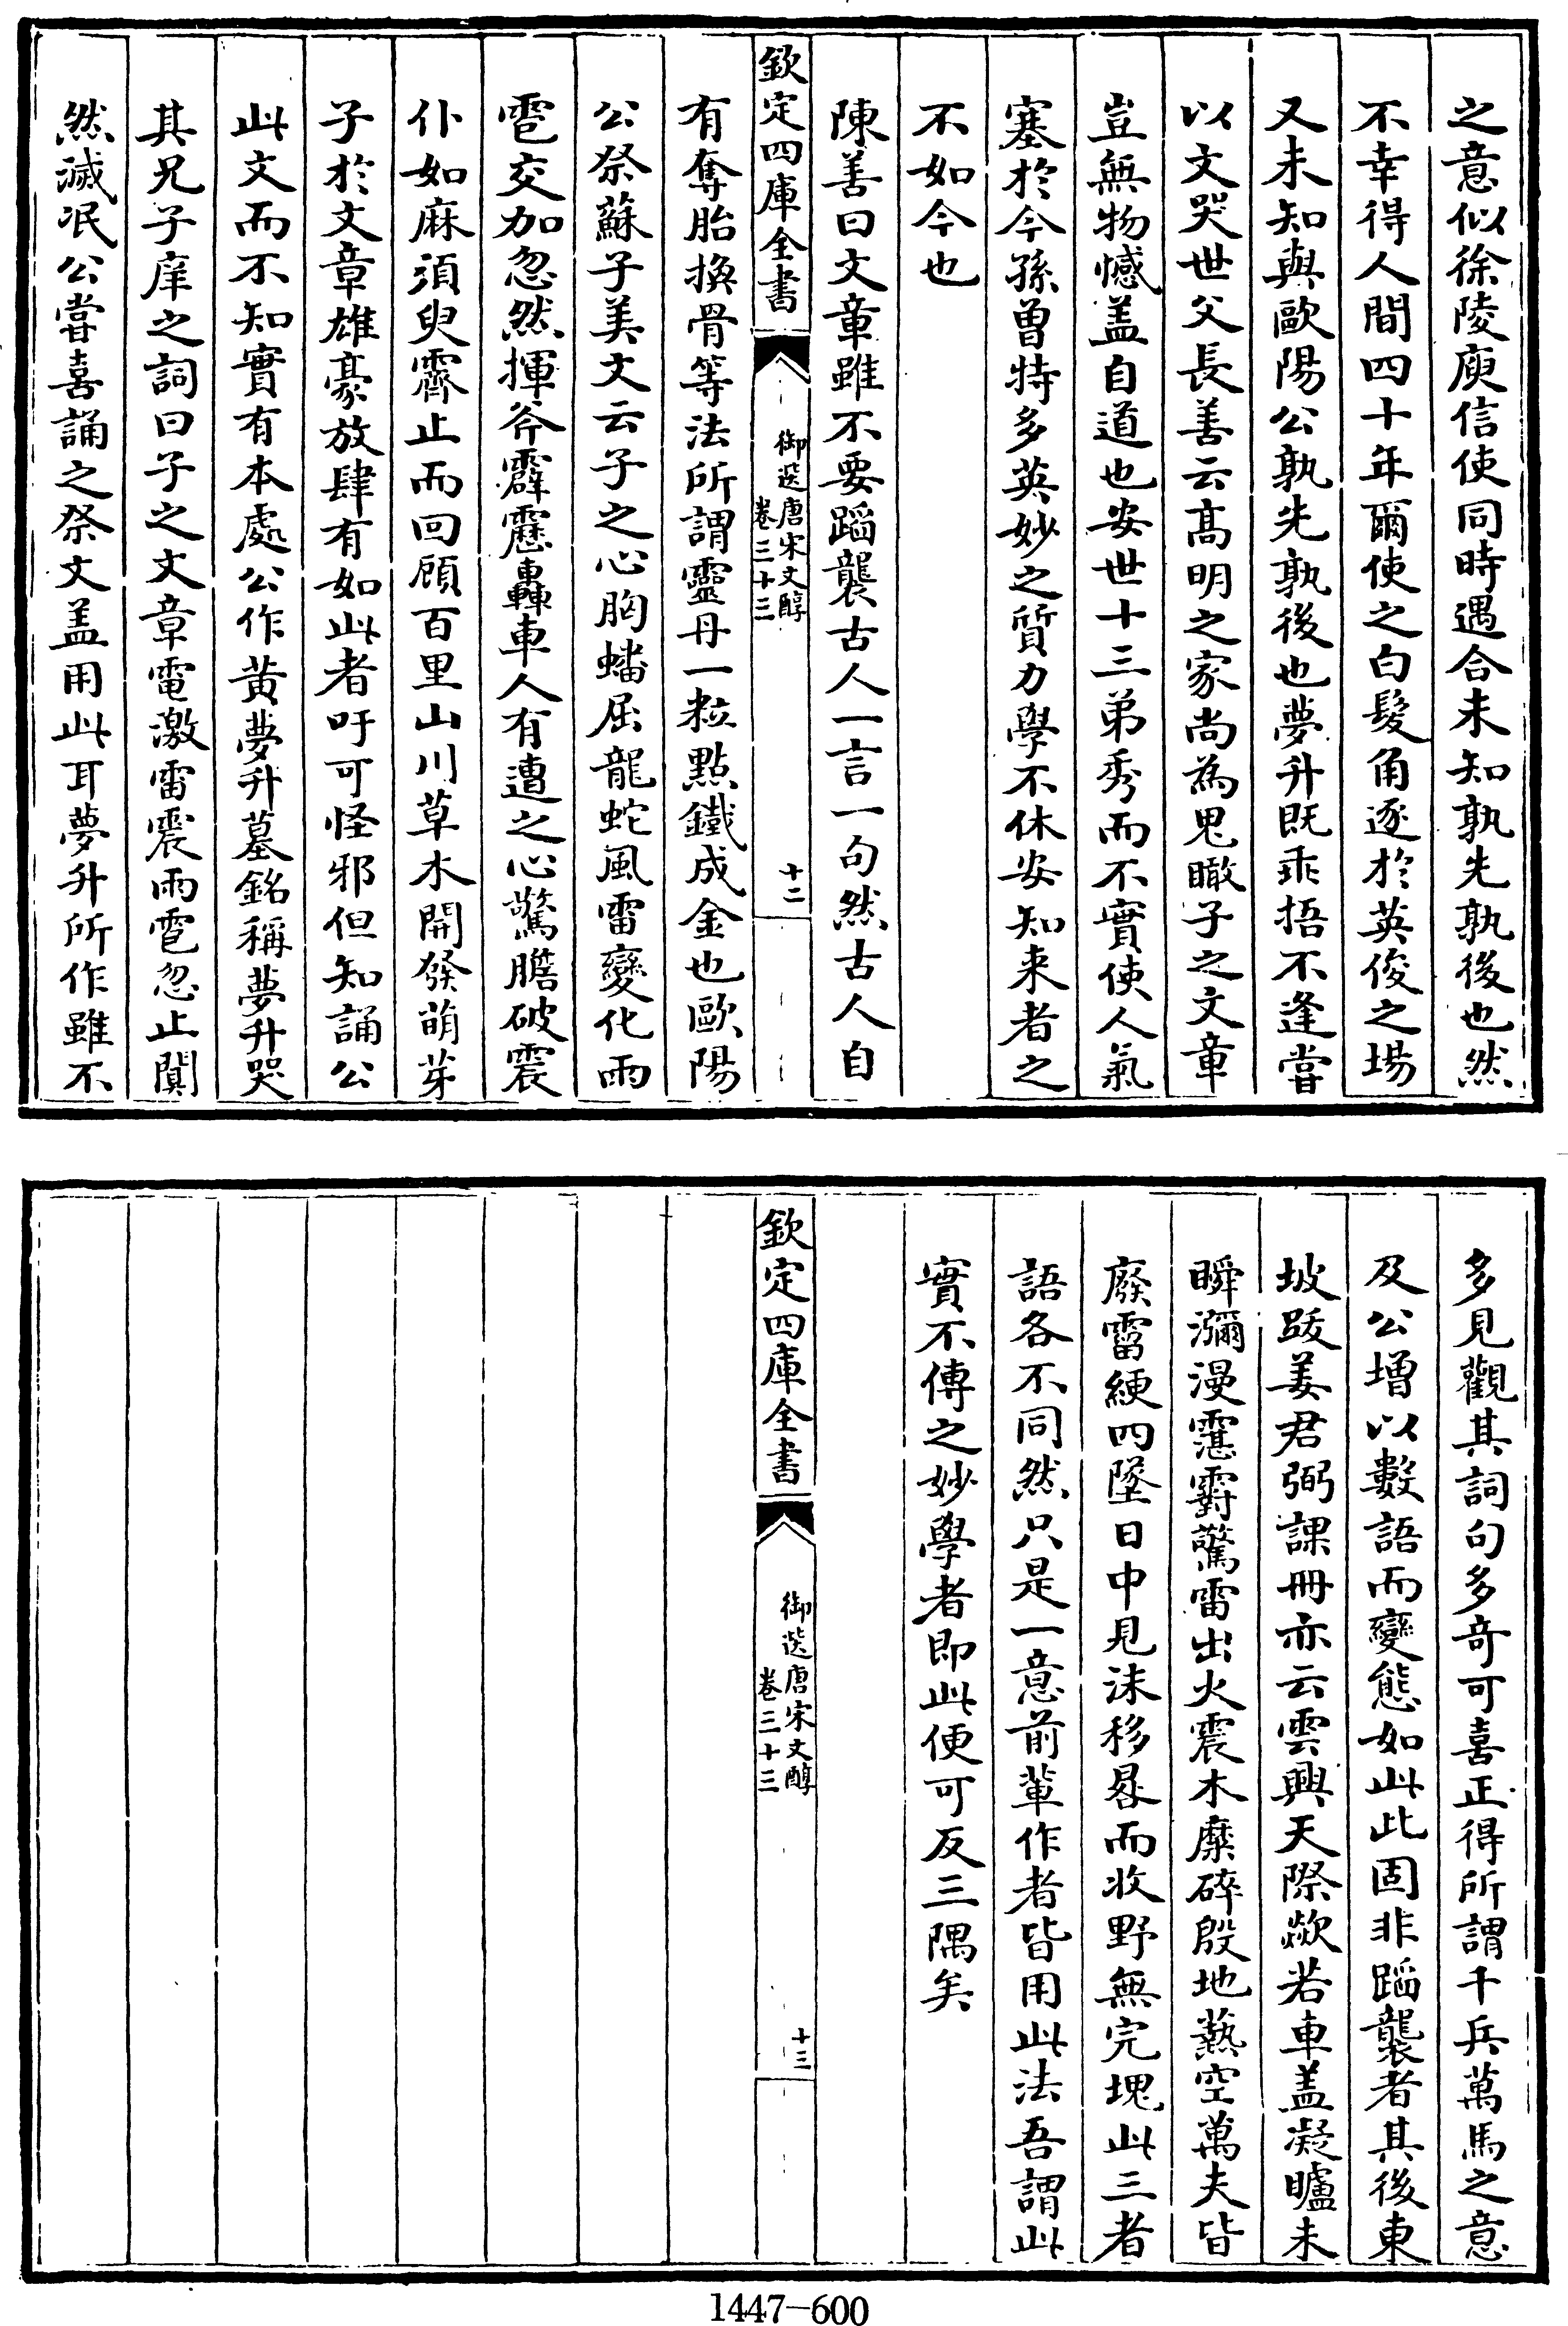 之意似徐陵庾信使同時遇合未知孰先孰後也然
不幸得人間四十年爾使之白髮角逐於英俊之場
又未知與歐陽公孰先孰後也夢升既乖捂不逢嘗
以文哭世父長善云高明之家尚為鬼瞰子之文章
豈無物憾盖自道也安世十三弟秀而不實使人氣
塞於今孫曽特多英妙之質力學不休安知来者之
不如今也
陳善曰文章雖不要蹈襲古人一言一句然古人自
欽定四庫全書
御選唐宋文醇
卷三十三
十二
有奪胎換骨等法所謂靈丹一粒點鐵成金也歐陽
公祭蘇子美文云子之心胸蟠屈龍蛇風雷變化雨
雹交加忽然揮斧霹靂轟車人有遭之心驚膽破震
仆如麻須臾霽止而回顧百里山川草木開發萌芽
子於文章雄豪放肆有如此者吁可怪邪但知誦公
此文而不知實有本處公作黃夢升墓銘稱夢升哭
其兄子庠之詞曰子之文章電激雷震雨雹忽止闃
然滅泯公嘗喜誦之祭文盖用此耳夢升所作雖不
多見觀其詞句多奇可喜正得所謂千兵萬馬之意
及公增以數語而變態如此此固非蹈襲者其後東
坡跋姜君弼課冊亦云雲興天際歘若車盖凝矑未
瞬瀰漫霮䨴驚雷出火震木糜碎殷地爇空萬夫皆
廢霤綆四墜日中見沬移晷而收野無完塊此三者
語各不同然只是一意前輩作者皆用此法吾謂此
實不傳之妙學者即此便可反三隅矣
欽定四庫全書
御選唐宋文醇
卷三十三
十三
1447-600